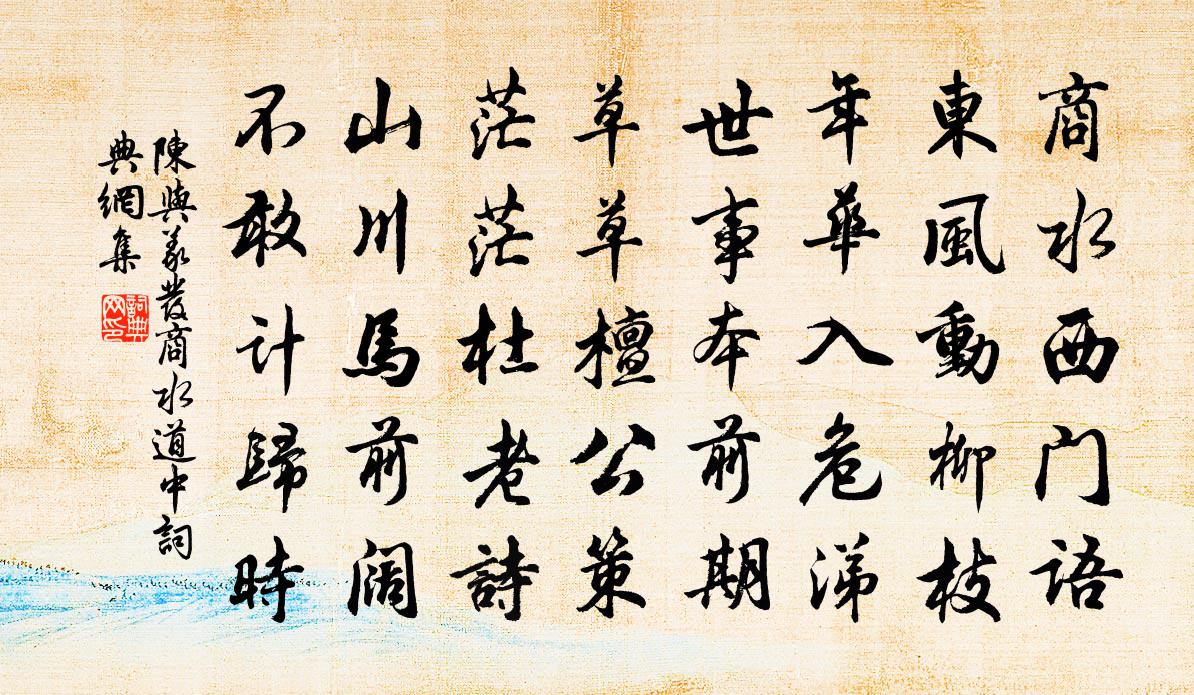 商水西门语
東風動柳枝
年華入危涕
世事本前期
草草檀公策
茫茫杜老詩
山川馬前阔
不敢计歸時
陳與義發商水道中詞
典網集
詞典
网印